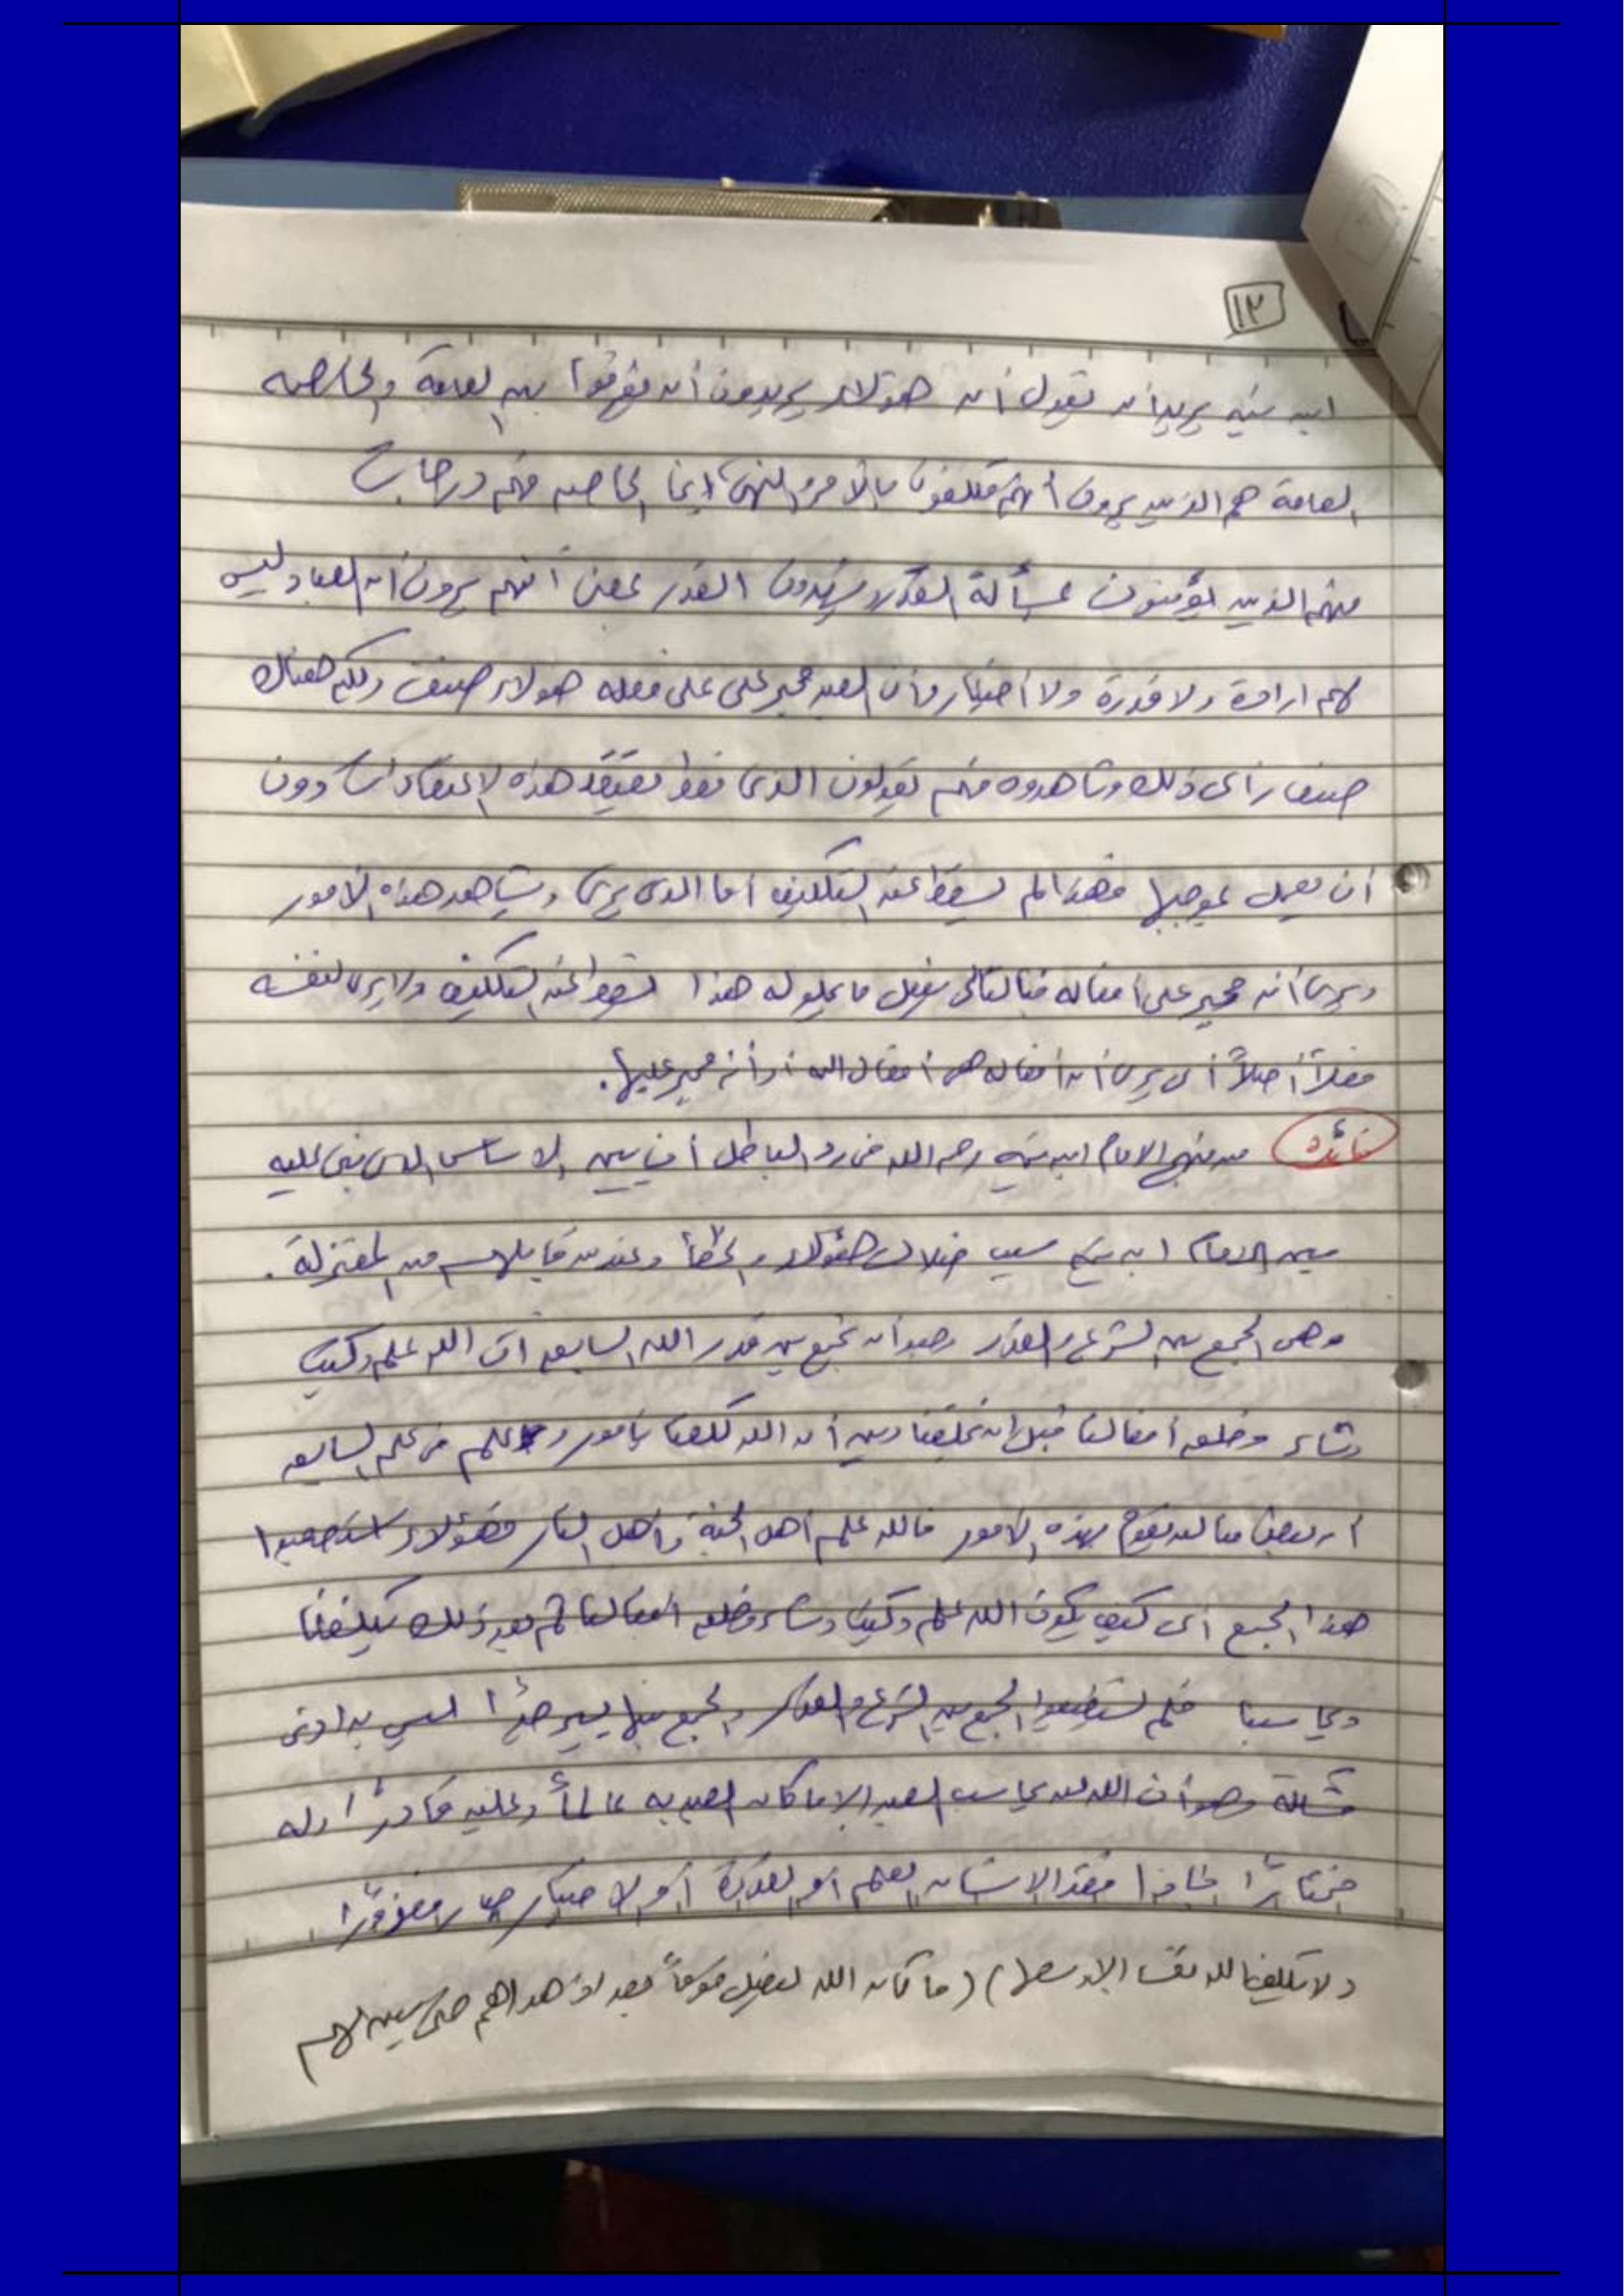 ١٢
ابن تيميه يريد ان يقول أن هؤلاء يريدون أن يفرقوا بين العامة والخاصه
العامة هم الذين يرون أنهم مكلفون بالأمر والنهي اما الخاصه فهم درجات
منهم الذين يؤمنون بمسألة القدر يشهدون القدر بمعنى أنهم يرون ان العباد ليس
لهم ارادة ولا قدرة ولا أختيار وأن العبد مجبر على على فعله هؤلاء صنف ولكن هناك
صنف رأى ذلك وشاهدوه فهم يقولون الذى فقط يعتقد هذه الاعتقادات دون
أن يعمل بموجبها فهذا لم يسقط عنه التكليف أما الذى يرى ويشاهد هذه الأمور
ويرى أنه مجبر على أفعاله فبالتالى يفعل ما يحلو له هذا يسقط عنه التكليف ولا يرى لنفسه
فعلاً أصلاً أى يرى ان أفعاله هى أفعال الله أو أنه مجبر عليها.
فائدة من منهج الامام ابن تيميه رحمه الله فى رد الباطل أن يبين الاساس الذى بنى عليه
يبين الامام ابن تيميه سبب ضلال هؤلاء والخطأ وعند من قابلهم من المعتزلة .
وهى الجمع بين الشرع والقدر وهو أن نجمع بين قدر الله السابق أن الله علم وكتب
وشاء وخلق أفعالنا قبل ان يخلقنا وبين أن الله كلفنا بأمور وعلم فى علمه السابق
ان بعضنا لن يقوم بهذه الأمور فالله علم أهل الجنة وأهل النار فهؤلاء استصعبوا
هذا الجمع أى كيف يكون الله علم وكتب وشاء وخلق أفعالنا ثم بعد ذلك يكلفنا
ويحاسبنا فلم يستطيعوا الجمع بين الشرع والقدر والجمع بينها يسير جداً ليس به ادنى
مشكلة وهو أن الله لن يحاسب العبد إلا ما كان العبد به عالماً وعليه قادراً وله
مختاراً فاذا فقد الانسان العلم أو القدرة أو الاختيار صار معذوراً
(لا يكلف الله نفسا إلا وسعها) (ما كان الله ليضل قوماً بعد اذ هداهم حتى يبين لهم